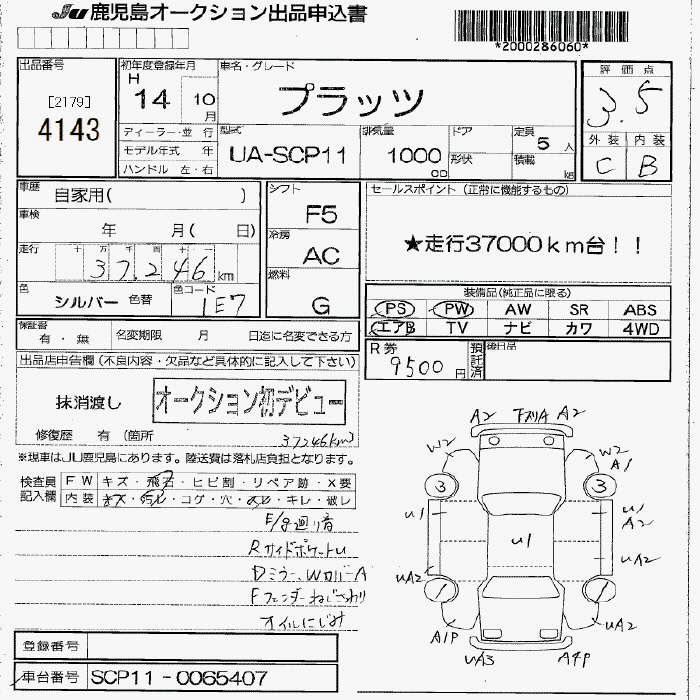 JU 鹿児島オークション出品申込書
*2000286060*
出品番号
[2179]
4143
初年度登録年月
H
14 10
月
ディーラー・並 行
モデル年式 年
ハンドル 左・右
車名・グレード
プラッツ
型式
UA-SCP11
排気量
1000
cc
ドア
形状
定員
5 人
積載
kg
評 価 点
3.5
外 装 内 装
C B
車歴
自家用( )
車検
年 月( 日)
走行 十 万 千 百 十 一
37,246 km
色
シルバー 色替
色コード
1E7
シフト
F5
冷房
AC
燃料
G
セールスポイント (正常に機能するもの)
★走行37000km台!!
装備品(純正品に限る)
PS PW AW SR ABS
エアB TV ナビ カワ 4WD
保証書
有・無
名変期限 月 日迄に名変できる方
R券
9500 円
預託済
後日品
出品店申告欄(不良内容・欠品など具体的に記入して下さい)
抹消渡し
オークション初デビュー
修復歴 有 (箇所
37246km)
※現車はJU鹿児島にあります。陸送費は落札店負担となります。
検査員記入欄
FW キズ・飛石・ヒビ割・リペア跡・X要
内装 キズ・汚れ・コゲ・穴・ キレ・破レ
Rサイドポケットu
Dミラー、WカバーA
オイルにじみ
A2 下スリA A2
W2 W2
A1
3 3
u1 u1
A2
u1
uA2 uA2
A1P uA2
uA3 A4P
登録番号
車台番号 SCP11-0065407